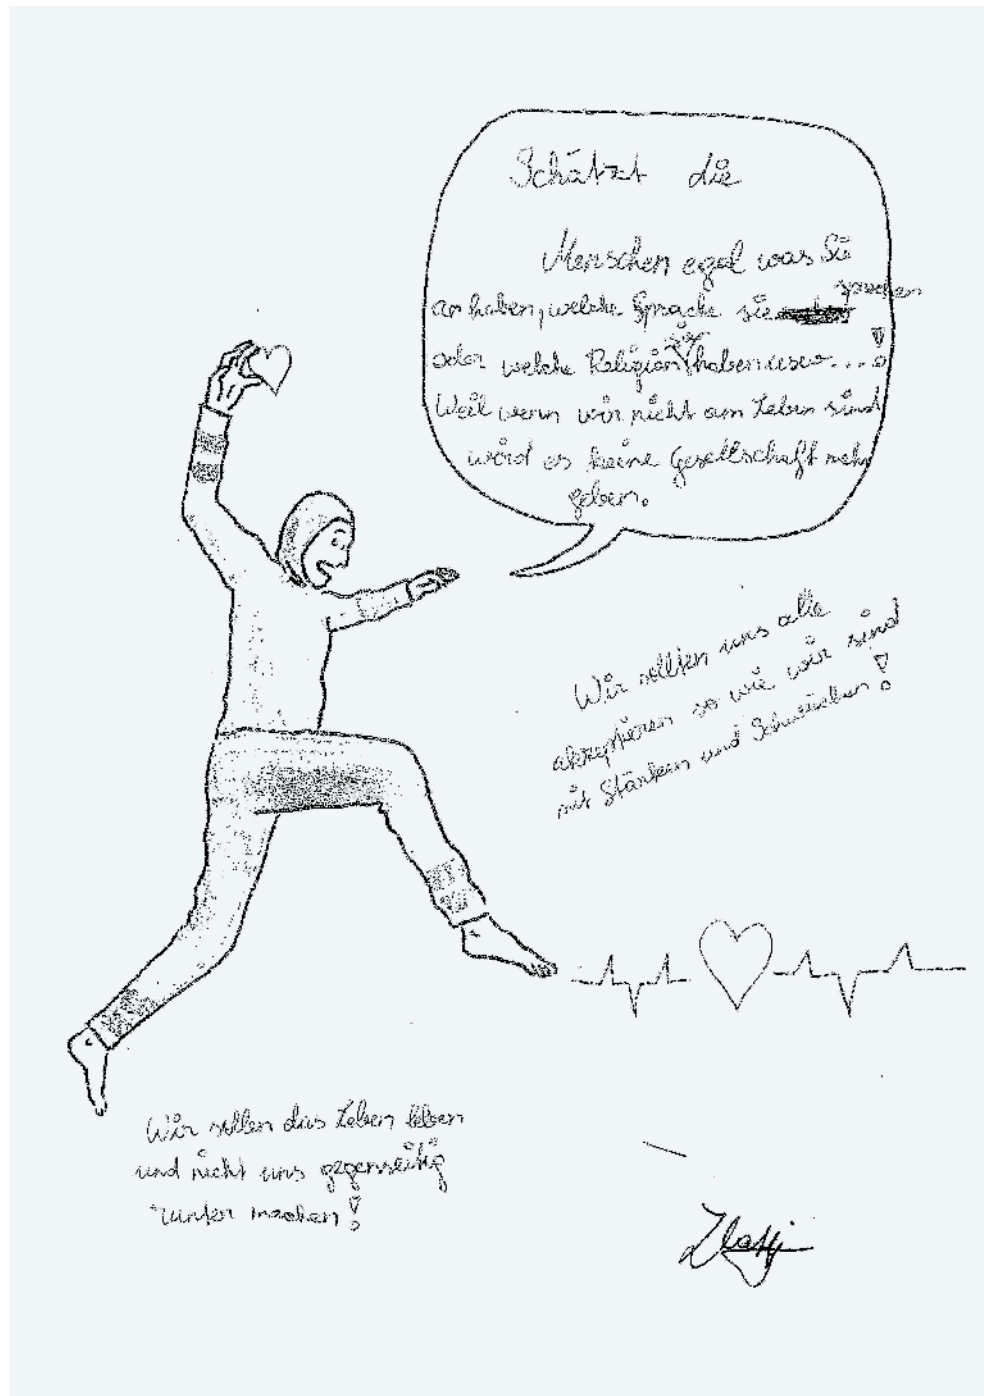 Schätzt die
Menschen egal was Sie
an haben, welche Sprache sie sprechen
oder welche Religion sie haben usw....!
Weil wenn wir nicht am Leben sind
wird es keine Gesellschaft mehr
geben.
Wir sollten uns alle
akzeptieren so wie wir sind
mit Stärken und Schwächen!
Wir sollen das Leben leben
und nicht uns gegenseitig
runter machen!